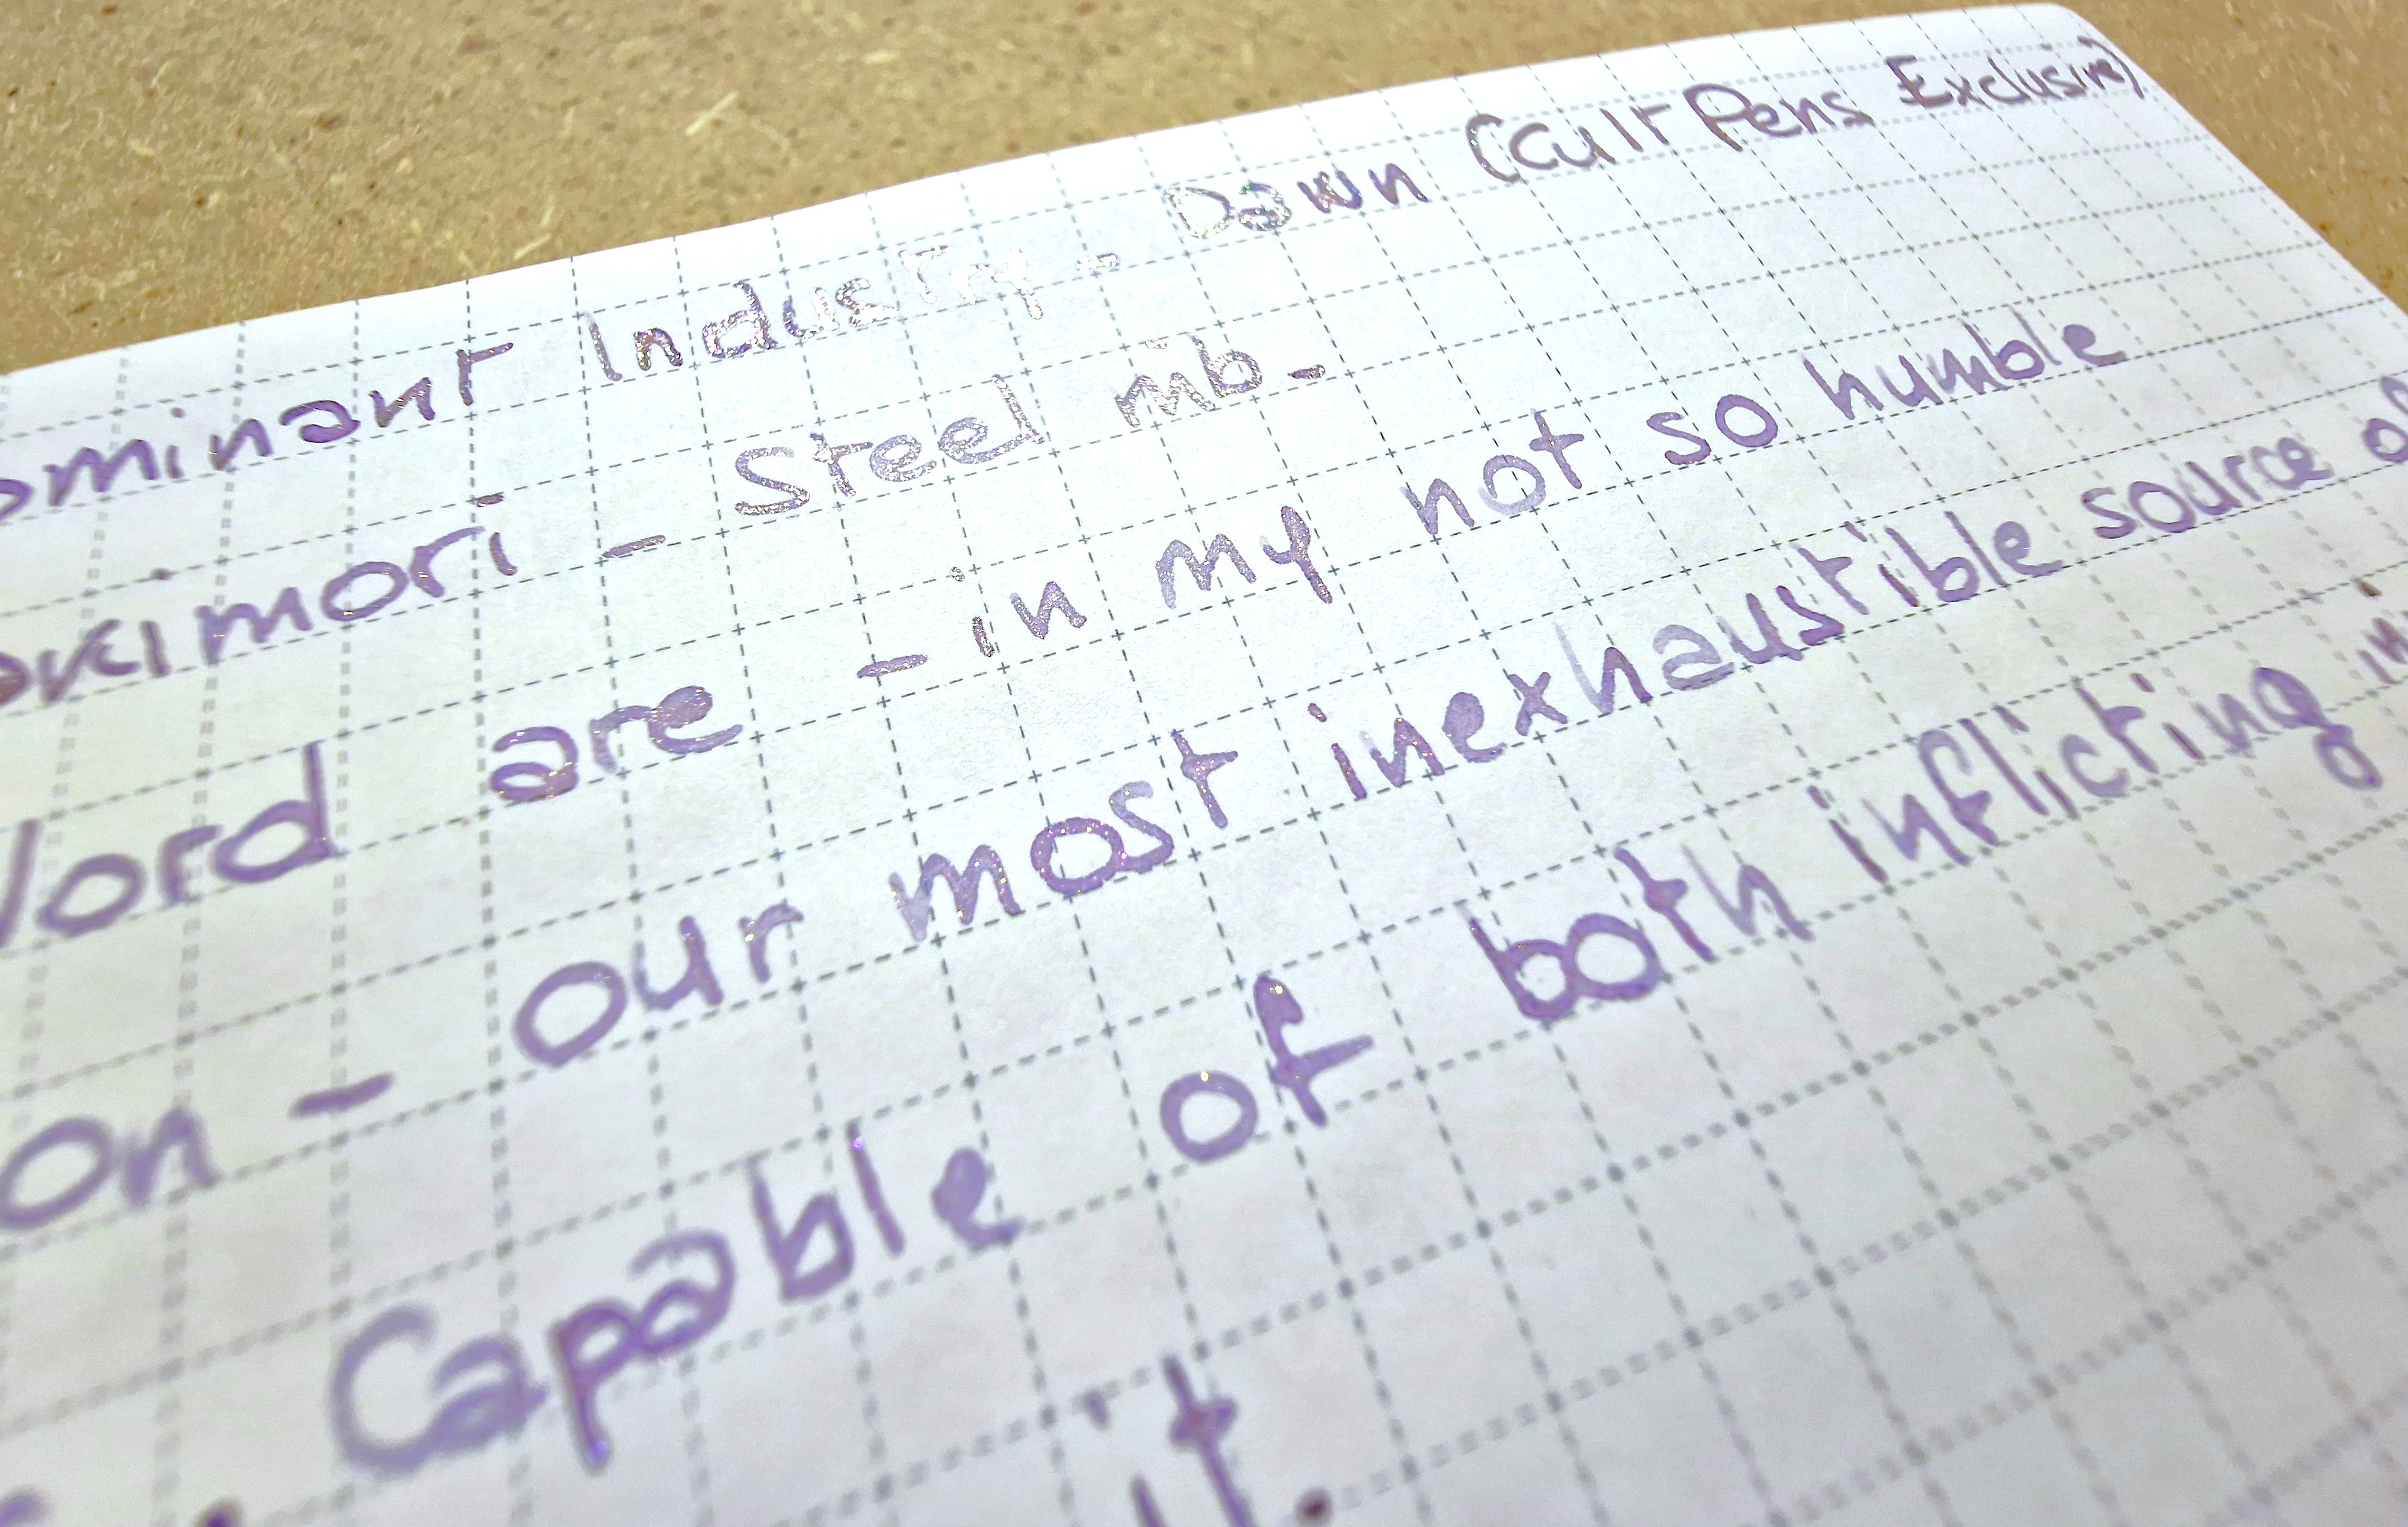 ominant Industry - Dawn (Cult Pens Exclusive)
akimori - Steel mb -
Word are - in my not so humble
on - our most inexhaustible source of
Capable of both inflicting in
it.